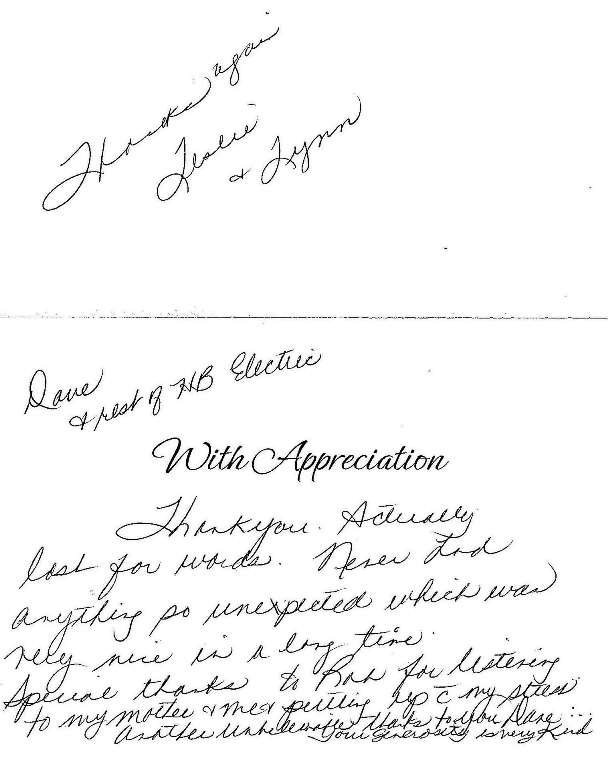 Thanks again
Leslie
& Lynn
Dave
& rest of HB Electric
With Appreciation
Thank you. Actually
lost for words. Never had
anything so unexpected which was
very nice in a long time.
Special thanks to Ron for listening
to my mother & me & putting up c̄ my stress
Another unbelievable thanks to you Dave...
Your generosity is very kind